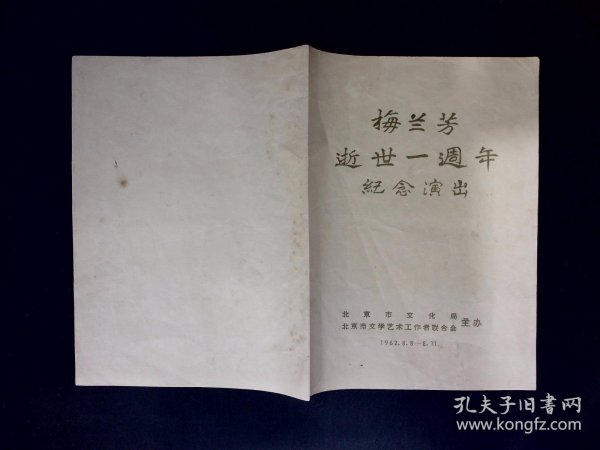 梅兰芳
逝世一週年
紀念演出
北京市文化局
北京市文学艺术工作者联合会 主办
1962.8.8—8.11.
孔夫子旧書网
www.kongfz.com